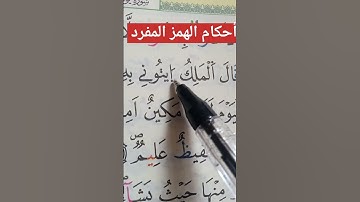 احكام الهمز المفرد
قَالَ اَلْمَلِكُ اٰيتُونِي بِهِ
مَكِينٌ اَمِ
فِيظٌ عَلِيمٌ
مِنْهَا حَيْثُ يَشَآ